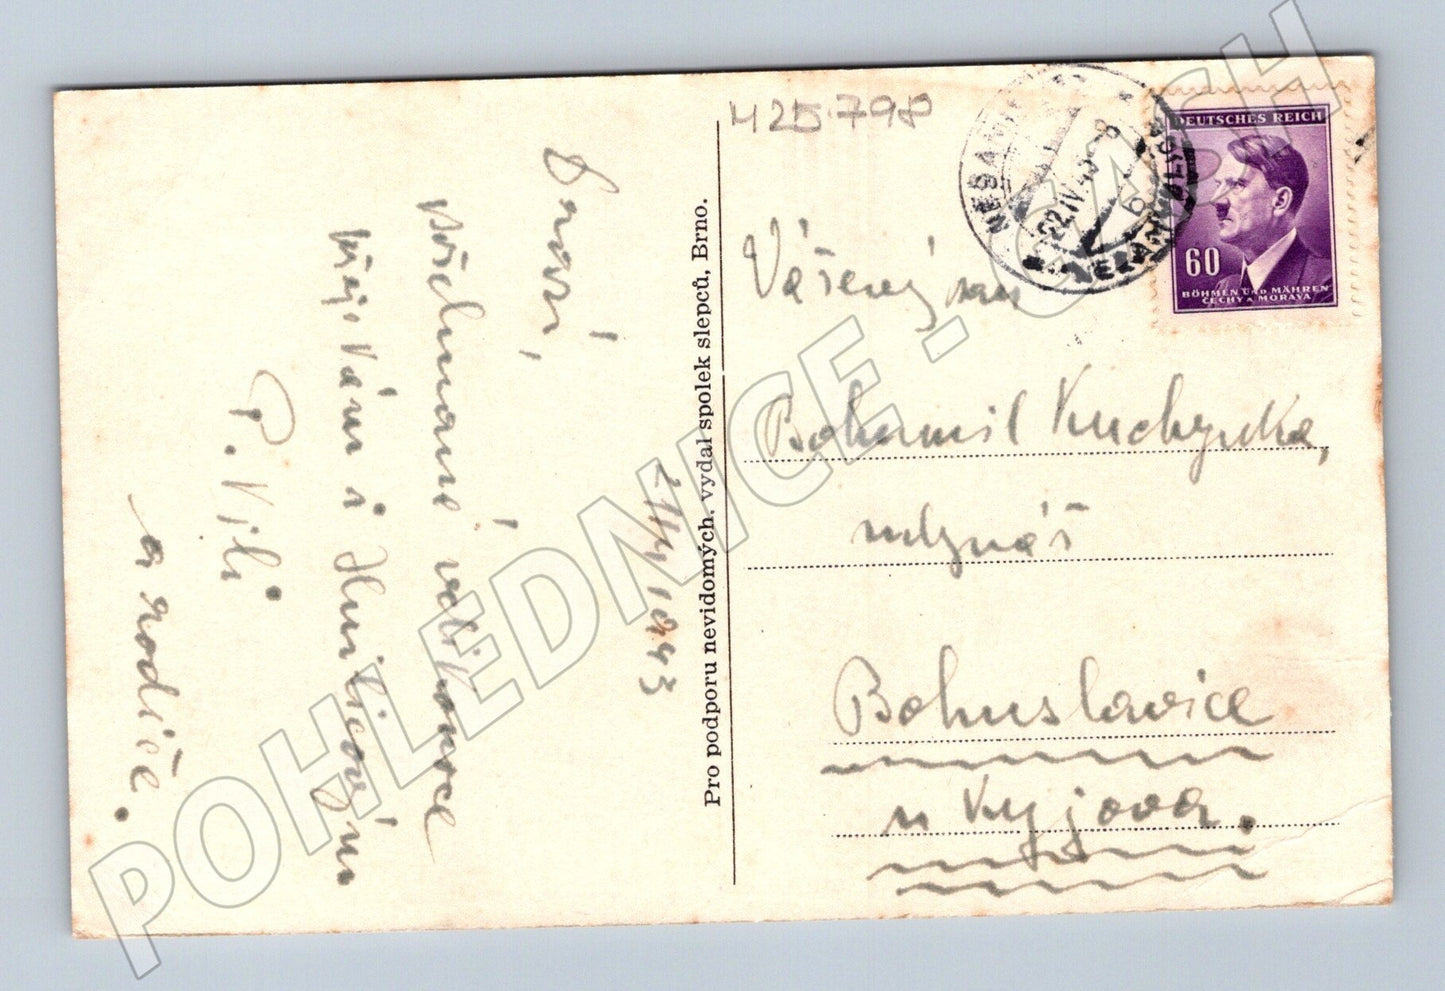 Drazí,
požehnané velikonoce
přeje Vám i Hnilicovým
P. Vili
a rodiče.
1943
Pro podporu nevidomých, vydal spolek slepců, Brno.
425798
22.IV.43-8
DEUTSCHES REICH
60
BÖHMEN UND MÄHREN
ČECHY A MORAVA
Vážený pan
Bohumil Kuchyňka,
mlynář
Bohuslavice
u Kyjova.
POHLEDNICE - CASH